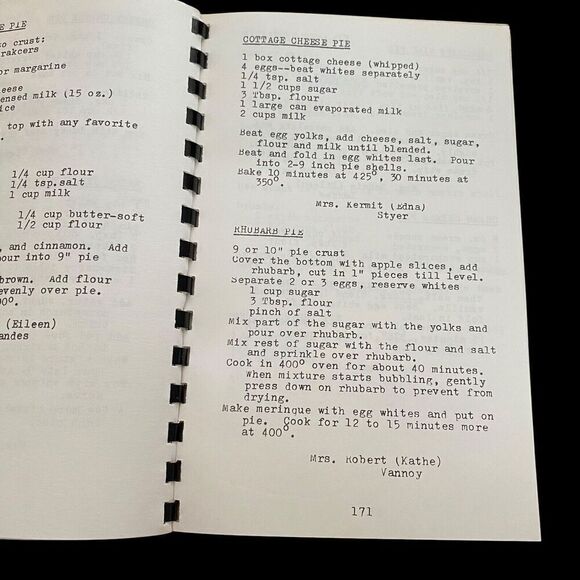 PIE
o crust:
rakcers
or margarine
eese
ensed milk (15 oz.)
ice
top with any favorite
.
1/4 cup flour
1/4 tsp.salt
1 cup milk
1/4 cup butter-soft
1/2 cup flour
, and cinnamon. Add
pour into 9" pie
brown. Add flour
evenly over pie.
00°.
(Eileen)
andes
COTTAGE CHEESE PIE
1 box cottage cheese (whipped)
4 eggs--beat whites separately
1/4 tsp. salt
1 1/2 cups sugar
3 Tbsp. flour
1 large can evaporated milk
2 cups milk
Beat egg yolks, add cheese, salt, sugar,
flour and milk until blended.
Beat and fold in egg whites last. Pour
into 2-9 inch pie shells.
Bake 10 minutes at 425°, 30 minutes at
350°.
Mrs. Kermit (Edna)
Styer
RHUBARB PIE
9 or 10" pie crust
Cover the bottom with apple slices, add
rhubarb, cut in 1" pieces till level.
Separate 2 or 3 eggs, reserve whites
1 cup sugar
3 Tbsp. flour
pinch of salt
Mix part of the sugar with the yolks and
pour over rhubarb.
Mix rest of sugar with the flour and salt
and sprinkle over rhubarb.
Cook in 400° oven for about 40 minutes.
When mixture starts bubbling, gently
press down on rhubarb to prevent from
drying.
Make meringue with egg whites and put on
pie. Cook for 12 to 15 minutes more
at 400°.
Mrs. Robert (Kathe)
Vannoy
171